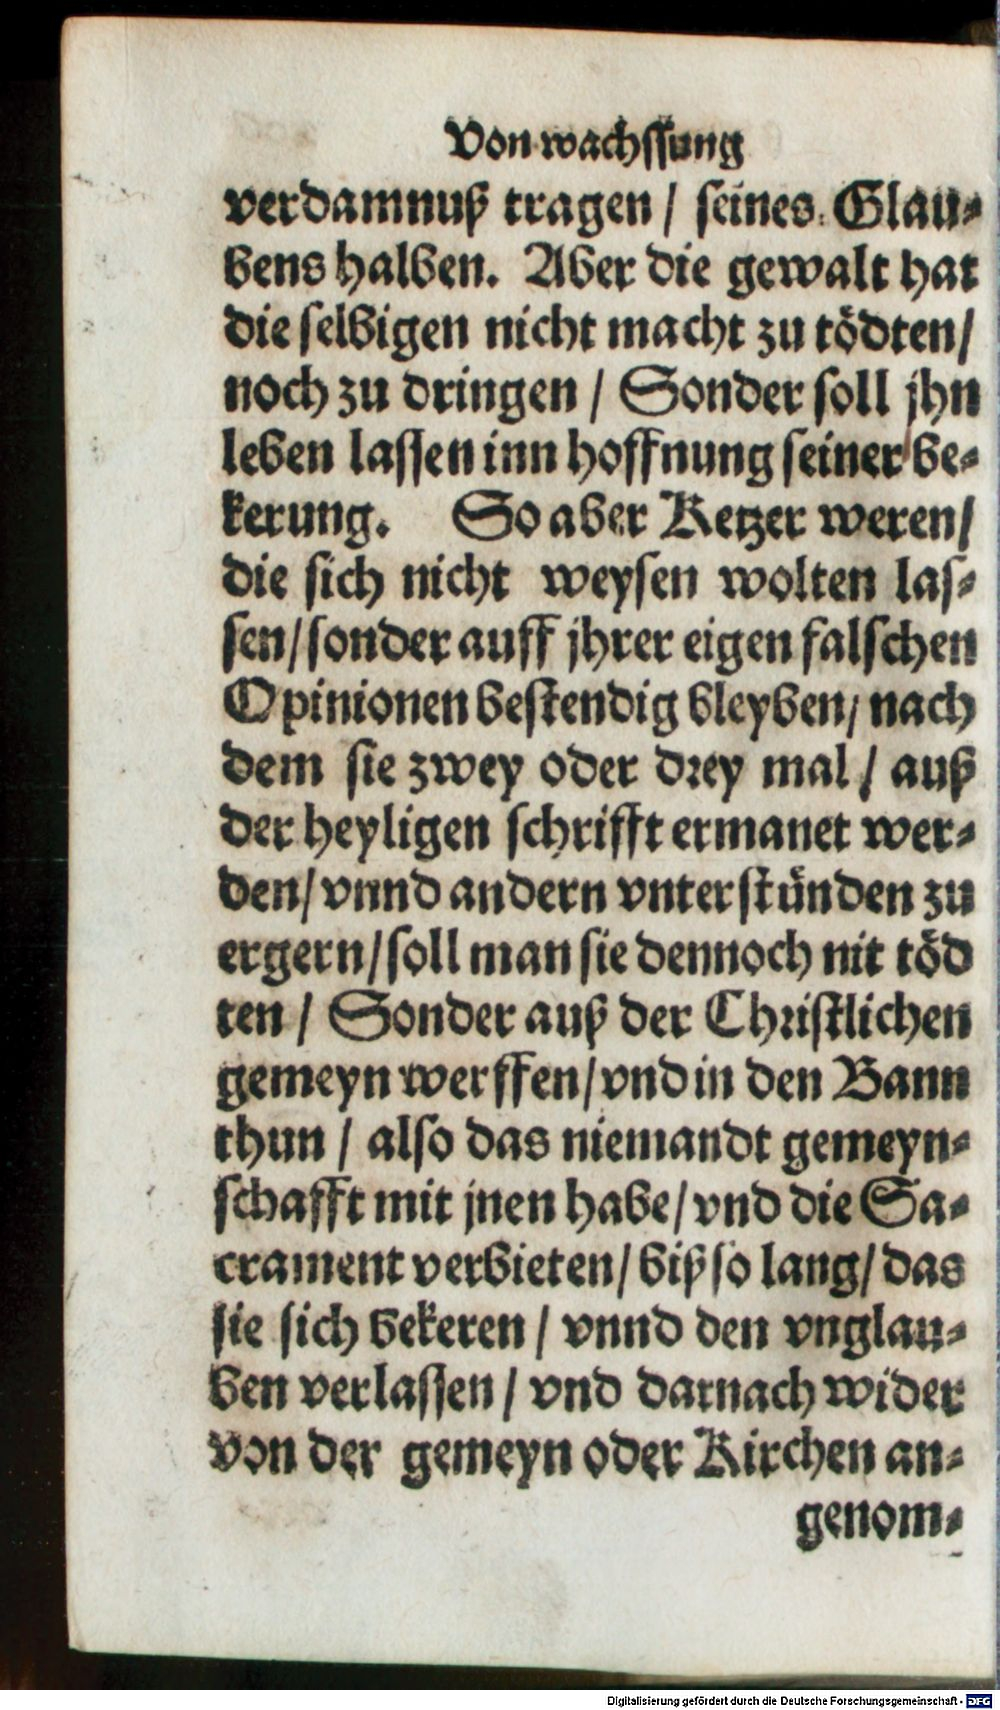 Von wachssung
verdamnuß tragen / seines Glau-
bens halben. Aber die gewalt hat
die selbigen nicht macht zu tödten /
noch zu dringen / Sonder soll jhn
leben lassen inn hoffnung seiner be-
kerung. So aber Ketzer weren /
die sich nicht weysen wolten las-
sen / sonder auff jhrer eigen falschen
Opinionen bestendig bleyben / nach
dem sie zwey oder drey mal / auß
der heyligen schrifft ermanet wer-
den / vnnd andern vnterstünden zu
ergern / soll man sie dennoch nit töd
ten / Sonder auß der Christlichen
gemeyn werffen / vnd in den Bann
thun / also das niemandt gemeyn-
schafft mit jnen habe / vnd die Sa-
crament verbieten / biß so lang / das
sie sich bekeren / vnnd den vnglau-
ben verlassen / vnd darnach wider
von der gemeyn oder Kirchen an-
genom-
Digitalisierung gefördert durch die Deutsche Forschungsgemeinschaft - DFG